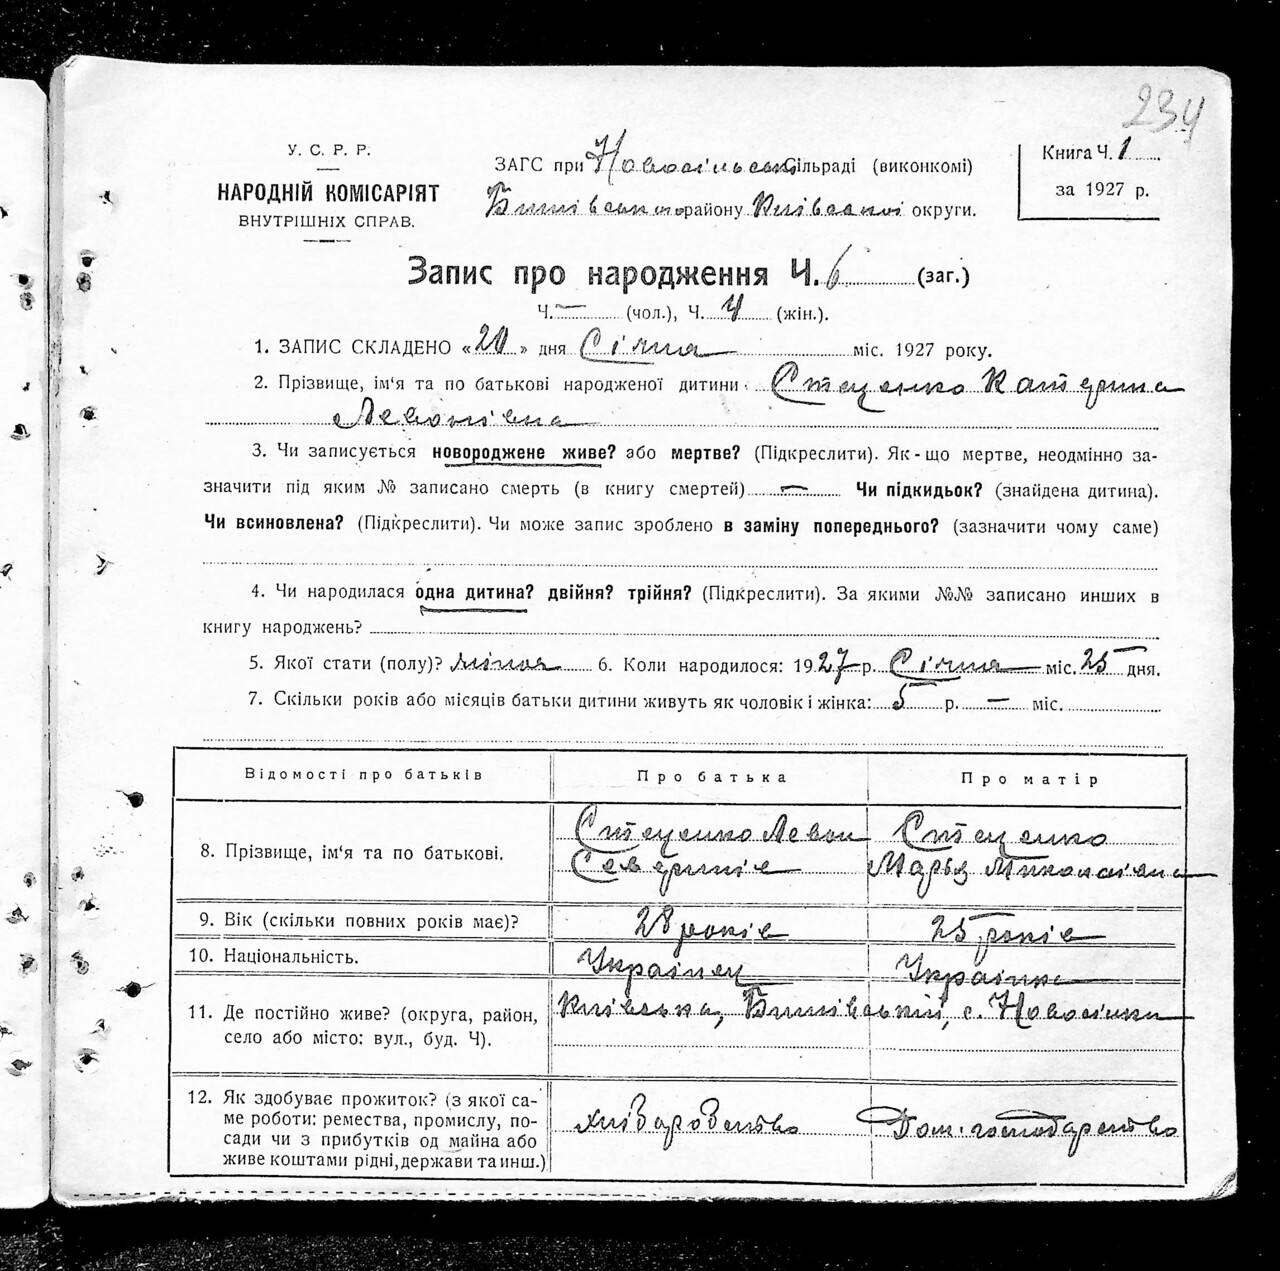 234
У. С. Р. Р.
НАРОДНІЙ КОМІСАРІЯТ
ВНУТРІШНІХ СПРАВ.
ЗАГС при Новосільській сільраді (виконкомі)
району Київської округи.
Книга Ч. 1
за 1927 р.
Запис про народження Ч. 6 (заг.)
Ч. — (чол.), Ч. 4 (жін.).
1. ЗАПИС СКЛАДЕНО «20» дня Січня міс. 1927 року.
2. Прізвище, ім'я та по батькові народженої дитини Стеценко Катерина
Левонівна
3. Чи записується новороджене живе? або мертве? (Підкреслити). Як-що мертве, неодмінно за-
значити під яким № записано смерть (в книгу смертей) — Чи підкидьок? (знайдена дитина).
Чи всиновлена? (Підкреслити). Чи може запис зроблено в заміну попереднього? (зазначити чому саме)
4. Чи народилася одна дитина? двійня? трійня? (Підкреслити). За якими №№ записано инших в
книгу народжень?
5. Якої стати (полу)? жіноч 6. Коли народилося: 1927 р. Січня міс. 25 дня.
7. Скільки років або місяців батьки дитини живуть як чоловік і жінка: 5 р. — міс.
Відомості про батьків Про батька Про матір
8. Прізвище, ім'я та по батькові. Стеценко Левон Северинів Стеценко Марья Миколаівна
9. Вік (скільки повних років має)? 28 років 25 років
10. Національність. Украінец Украінка
11. Де постійно живе? (округа, район, село або місто: вул., буд. Ч). Київська, с. Новосілки
12. Як здобуває прожиток? (з якої са-
ме роботи: ремества, промислу, по-
сади чи з прибутків од майна або
живе коштами рідні, держави та инш.)
хліборобство Дом. господарство